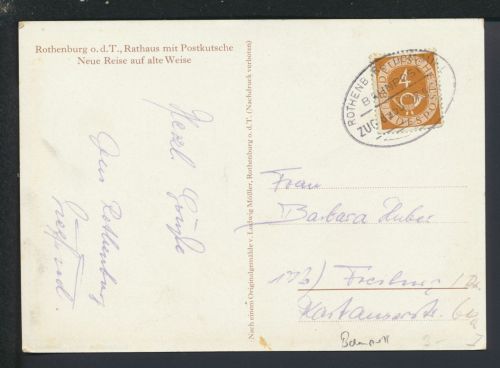 Rothenburg o. d. T., Rathaus mit Postkutsche
Neue Reise auf alte Weise
Herzl. Grüße
aus Rothenburg
Nach einem Originalgemälde v. Ludwig Mößler, Rothenburg o. d. T. (Nachdruck verboten)
ROTHENB
BAHNPOST
ZUG
DEUTSCHE
4
BUNDESPOST
Frau
Barbara Huber
Freiburg / Br.
Kartäuserstr.
Bahnpost